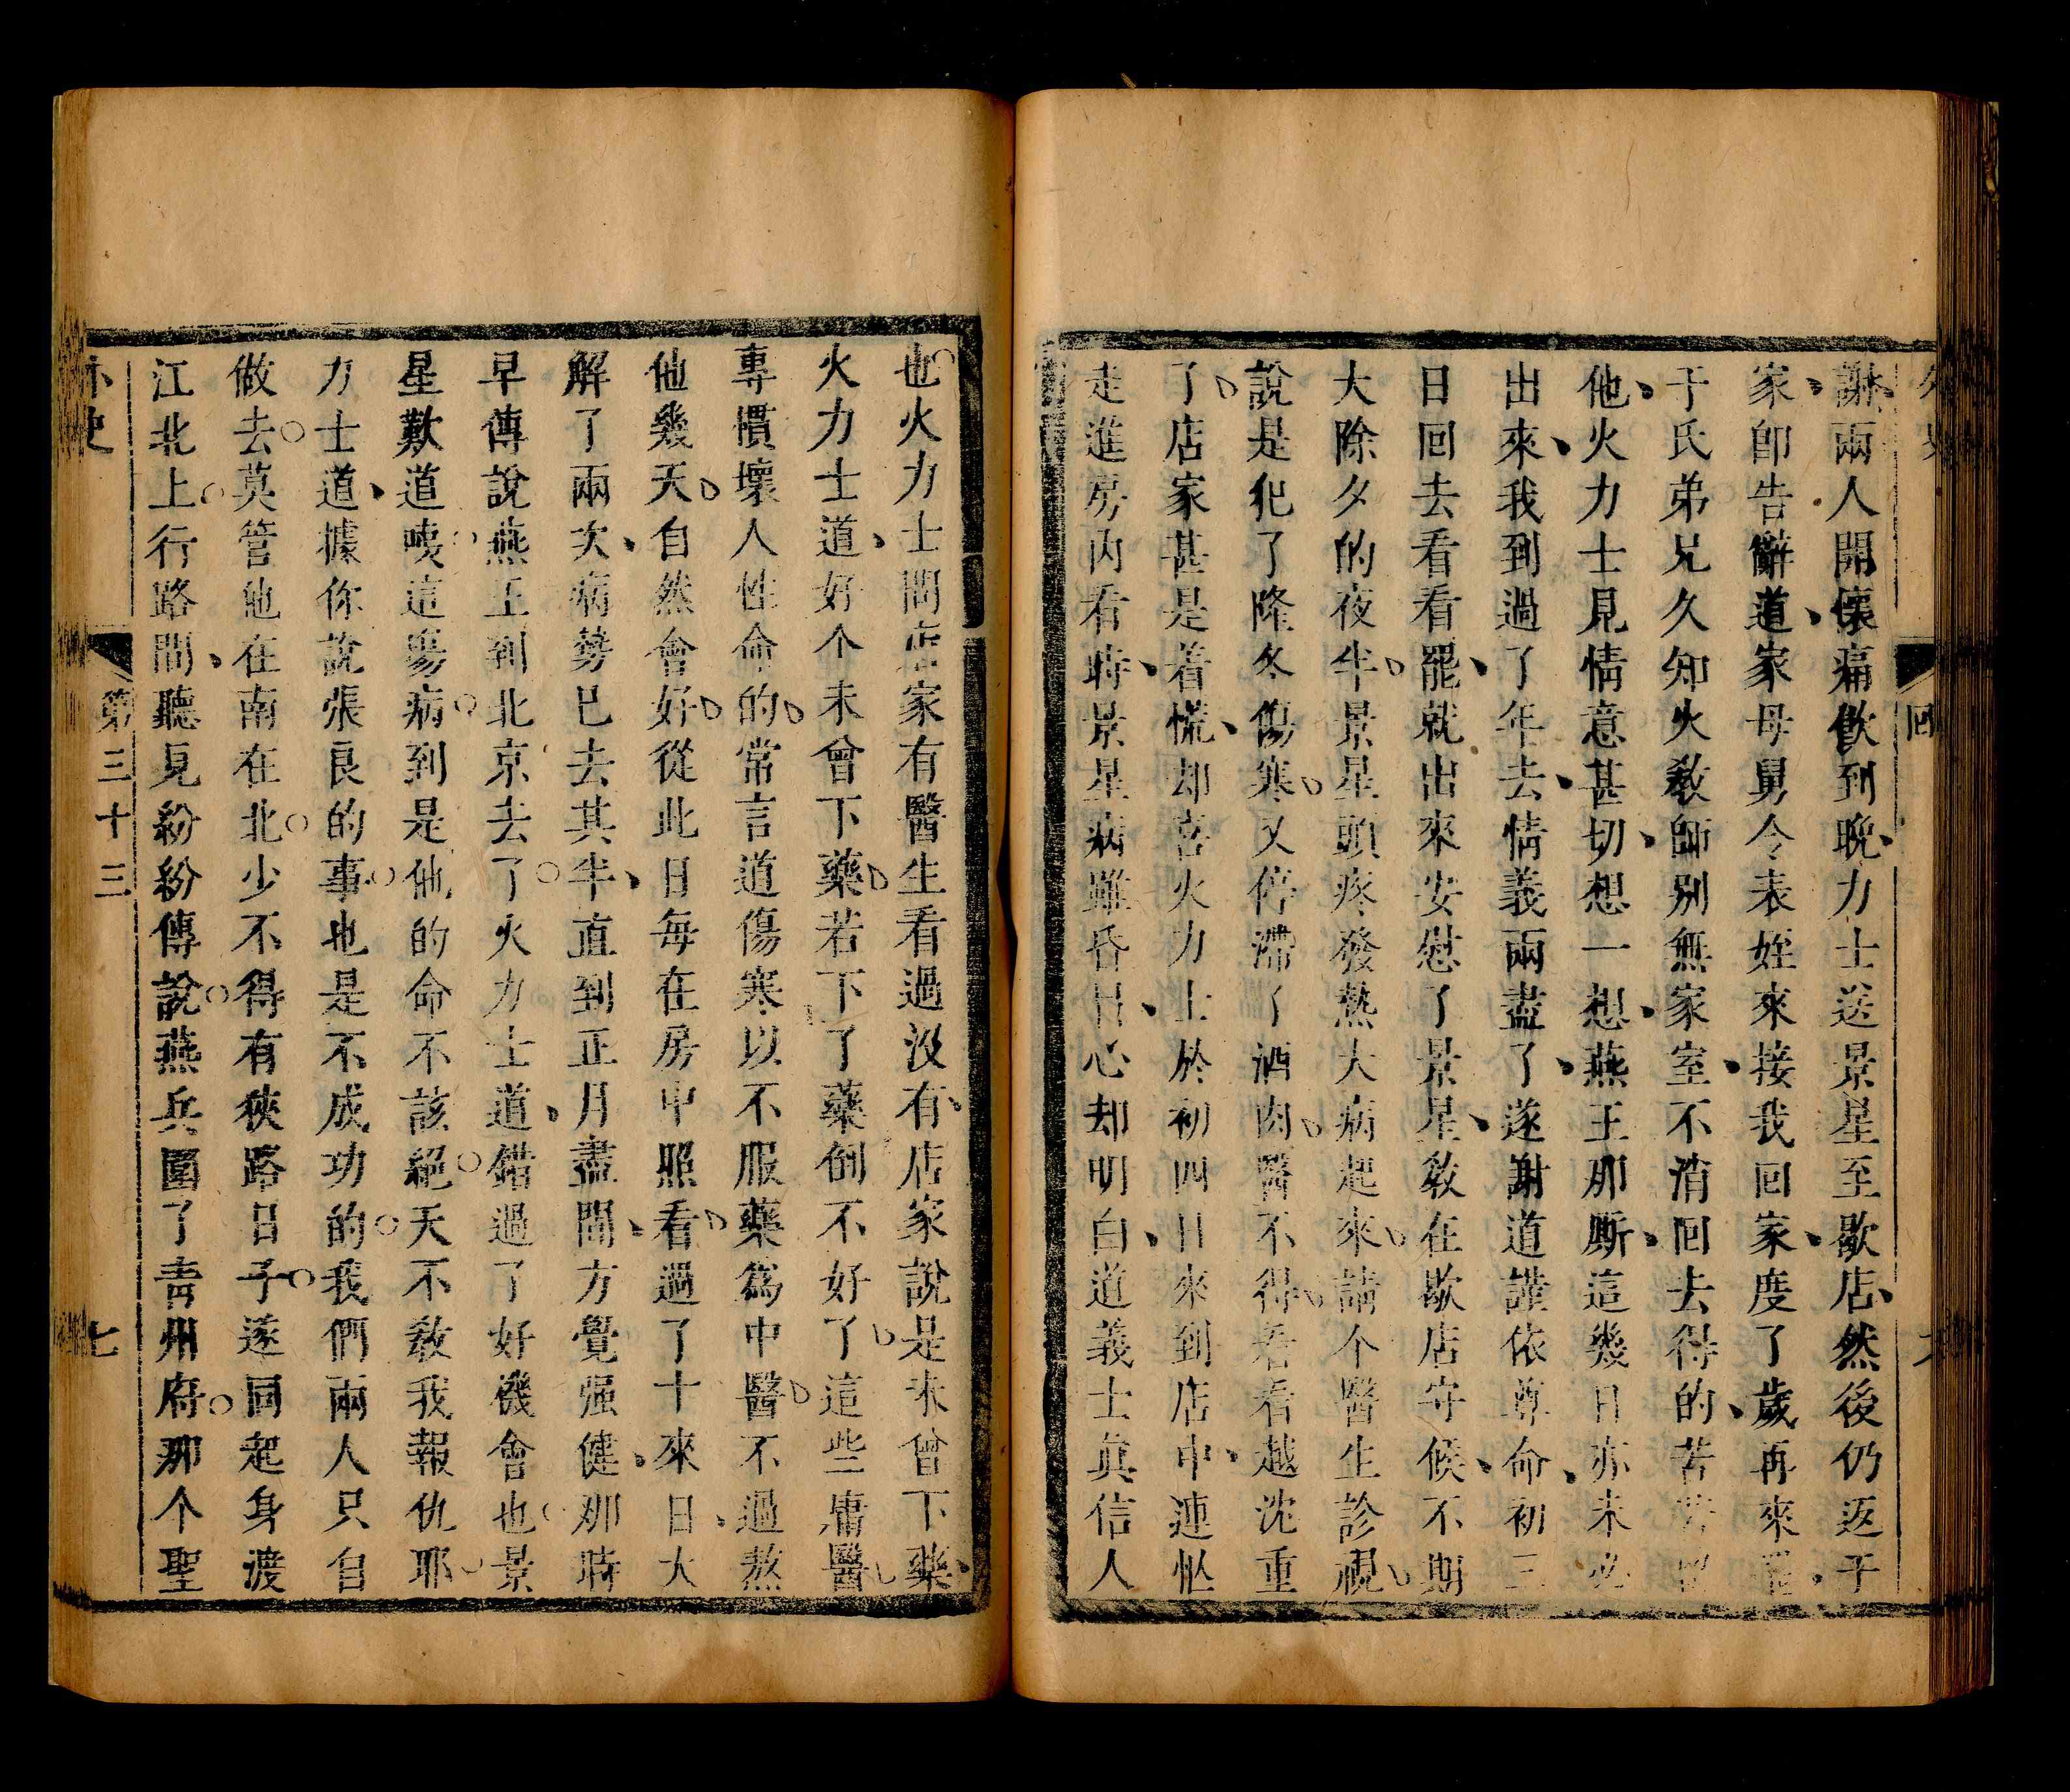 謝兩人開懷痛飲到晚力士送景星至歇店然後仍返于
家卽告辭道家母舅令表姪來接我回家度了歲再來罷
于氏弟兄久知火敎師別無家室不消回去得的苦苦留
他火力士見情意甚切想一想燕王那厮這幾日亦未必
出來我到過了年去情義兩盡了遂謝道謹依尊命初三
日回去看看罷就出來安慰了景星敎在歇店守候不期
大除夕的夜半景星頭疼發熱大病起來請个醫生診視
說是犯了隆冬傷寒又停滯了酒肉醫不得看看越沈重
了店家甚是着慌却喜火力士於初四日來到店中連忙
走進房內看時景星病雖昏甘心却明白道義士眞信人
也火力士問店家有醫生看過沒有店家說是未曾下藥
火力士道好个未曾下藥若下了藥倒不好了這些庸醫
專慣壞人性命的常言道傷寒以不服藥爲中醫不過熬
他幾天自然會好從此日每在房中照看過了十來日大
解了兩次病勢已去其半直到正月盡間方覺强健那時
早傳說燕王到北京去了火力士道錯過了好機會也景
星歎道嗄這塲病到是他的命不該絕天不敎我報仇耶
力士道據你說張良的事也是不成功的我們兩人只自
做去莫管他在南在北少不得有狹路日子遂同起身渡
江北上行路間聽見紛紛傳說燕兵圍了靑州府那个聖
外史
第三十三
七